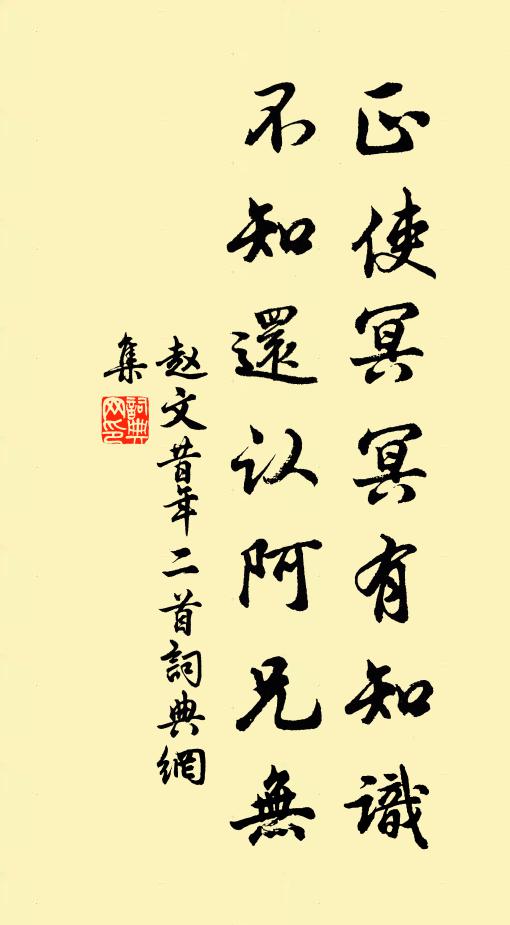 正使冥冥有知識
不知還认阿兄無
赵文昔年二首詞典網
集
詞典網印